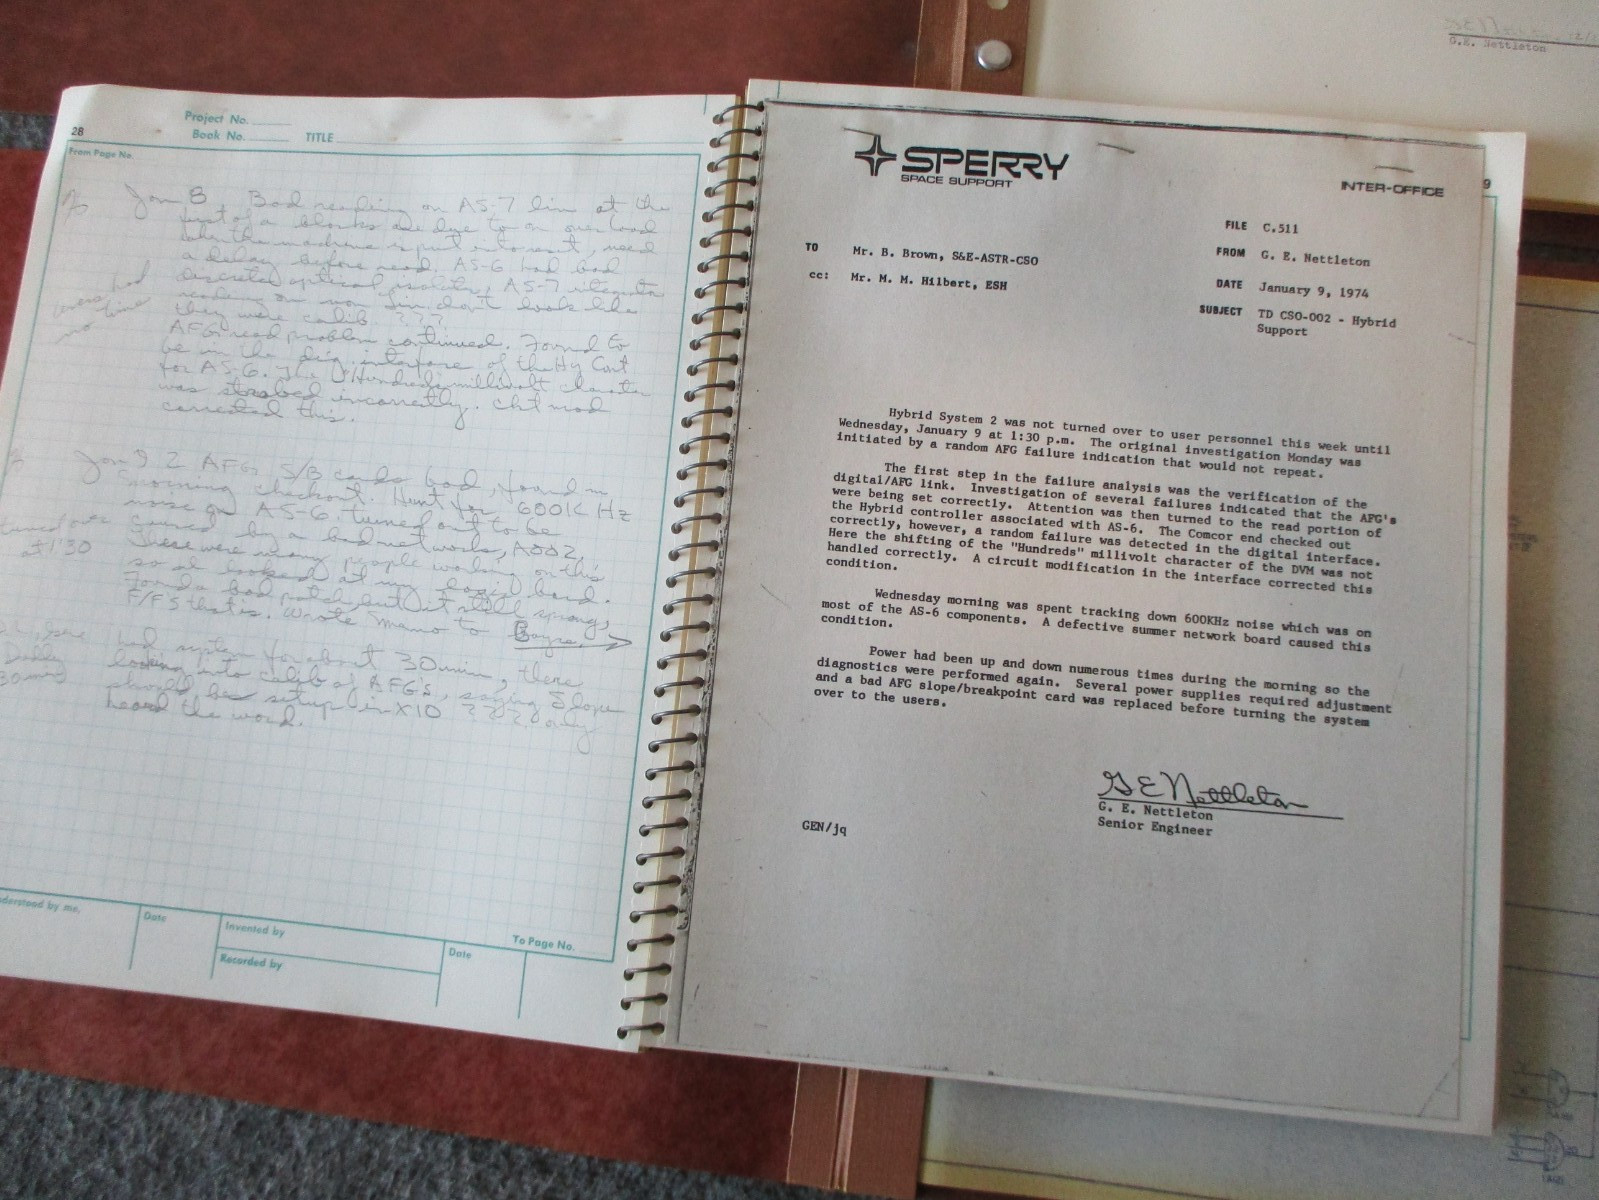 28
Project No.
Book No.
TITLE
From Page No.
Jan 8 Bad reading on AS-7 lin at the
first of a blocks are due to an overload
when the machine is put into reset, need
a delay before read. AS-6 had bad
discrete optical isolator, AS-7 integrator
reading on non lin don't look like
they were calib. ???
AFG read problem continued. Found to
be in the dig. interface of the Hy Cont
for AS-6. The Hundreds millivolt character
was strobed incorrectly. Ckt mod
corrected this.
had
no time
Jan 9 2 AFG S/B cards bad, found in
morning checkout. Hunt for 600K Hz
noise on AS-6, turned out to be
caused by a bad network, A002,
There were many people working on this
so I looked at my logic board.
Found a bad patch but it still sprong,
F/F's that is. Wrote memo to
turned over
at 1:30
had system for about 30 min, there
looking into calib of AFG's, saying slope
should be setup in X10 ???? only
heard the word.
30 min
Understood by me,
Date
Invented by
Recorded by
Date
To Page No.
SPERRY
SPACE SUPPORT
INTER-OFFICE
9
FILE C.511
TO Mr. B. Brown, S&E-ASTR-CSO
FROM G. E. Nettleton
cc: Mr. M. M. Hilbert, ESH
DATE January 9, 1974
SUBJECT TD CSO-002 - Hybrid
Support
Hybrid System 2 was not turned over to user personnel this week until
Wednesday, January 9 at 1:30 p.m. The original investigation Monday was
initiated by a random AFG failure indication that would not repeat.
The first step in the failure analysis was the verification of the
digital/AFG link. Investigation of several failures indicated that the AFG's
were being set correctly. Attention was then turned to the read portion of
the Hybrid controller associated with AS-6. The Comcor end checked out
correctly, however, a random failure was detected in the digital interface.
Here the shifting of the "Hundreds" millivolt character of the DVM was not
handled correctly. A circuit modification in the interface corrected this
condition.
Wednesday morning was spent tracking down 600KHz noise which was on
most of the AS-6 components. A defective summer network board caused this
condition.
Power had been up and down numerous times during the morning so the
diagnostics were performed again. Several power supplies required adjustment
and a bad AFG slope/breakpoint card was replaced before turning the system
over to the users.
G E Nettleton
G. E. Nettleton
Senior Engineer
GEN/jq
G.E. Nettleton